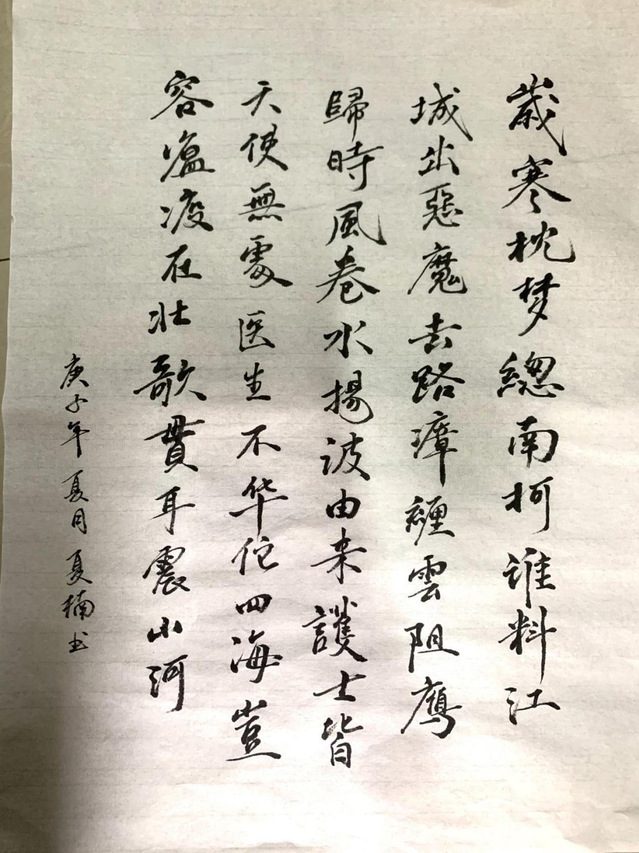 歲寒枕梦總南柯谁料江
城出惡魔去路瘴纏雲阻鹰
歸時風卷水揚波由来護士皆
天使無處医生不华佗四海豈
容瘟疫在壮歌貫耳震山河
庚子年夏月夏楠书